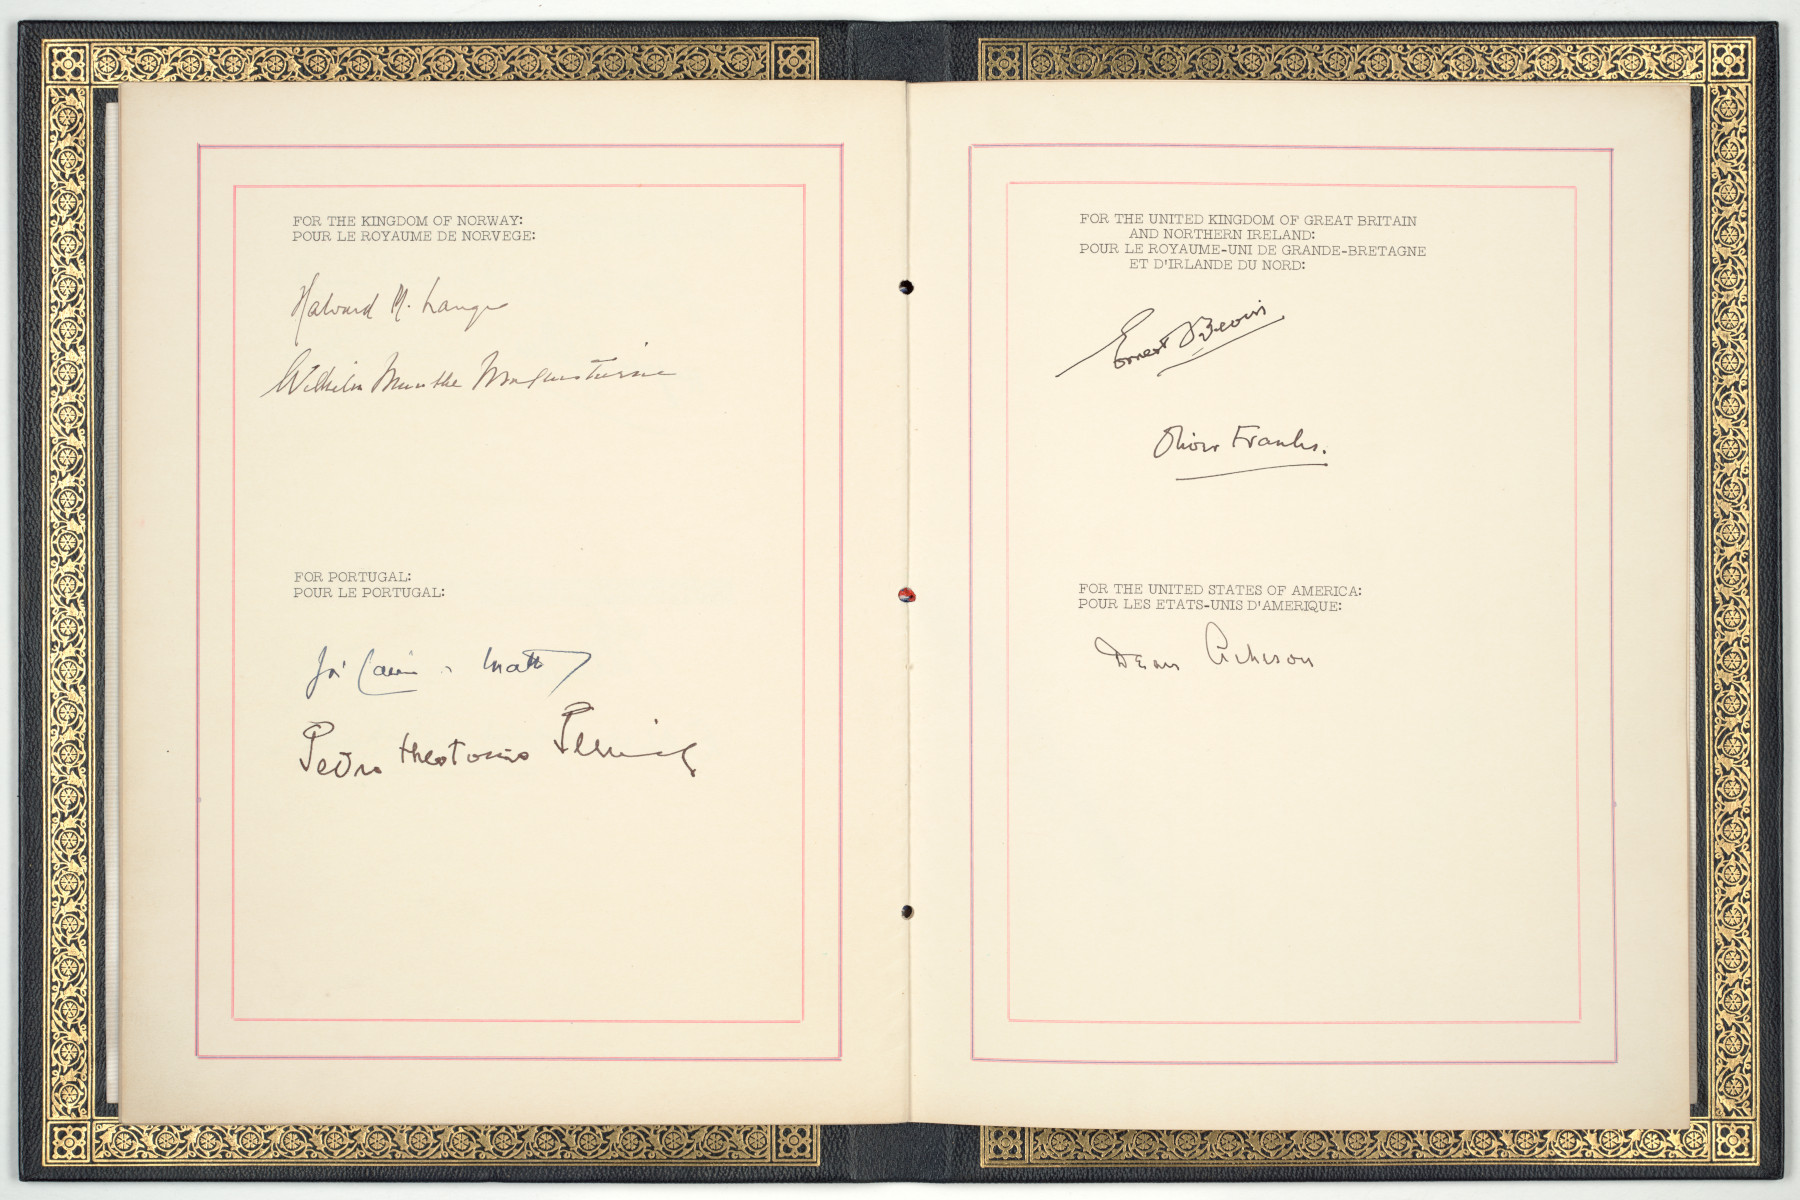 FOR THE KINGDOM OF NORWAY:
POUR LE ROYAUME DE NORVEGE:
Halvard M. Lange
Wilhelm Munthe Morgenstierne
FOR PORTUGAL:
POUR LE PORTUGAL:
José Caeiro da Matta
Pedro Theotonio Pereira
FOR THE UNITED KINGDOM OF GREAT BRITAIN
AND NORTHERN IRELAND:
POUR LE ROYAUME-UNI DE GRANDE-BRETAGNE
ET D'IRLANDE DU NORD:
Ernest Bevin
Oliver Franks.
FOR THE UNITED STATES OF AMERICA:
POUR LES ETATS-UNIS D'AMERIQUE:
Dean Acheson